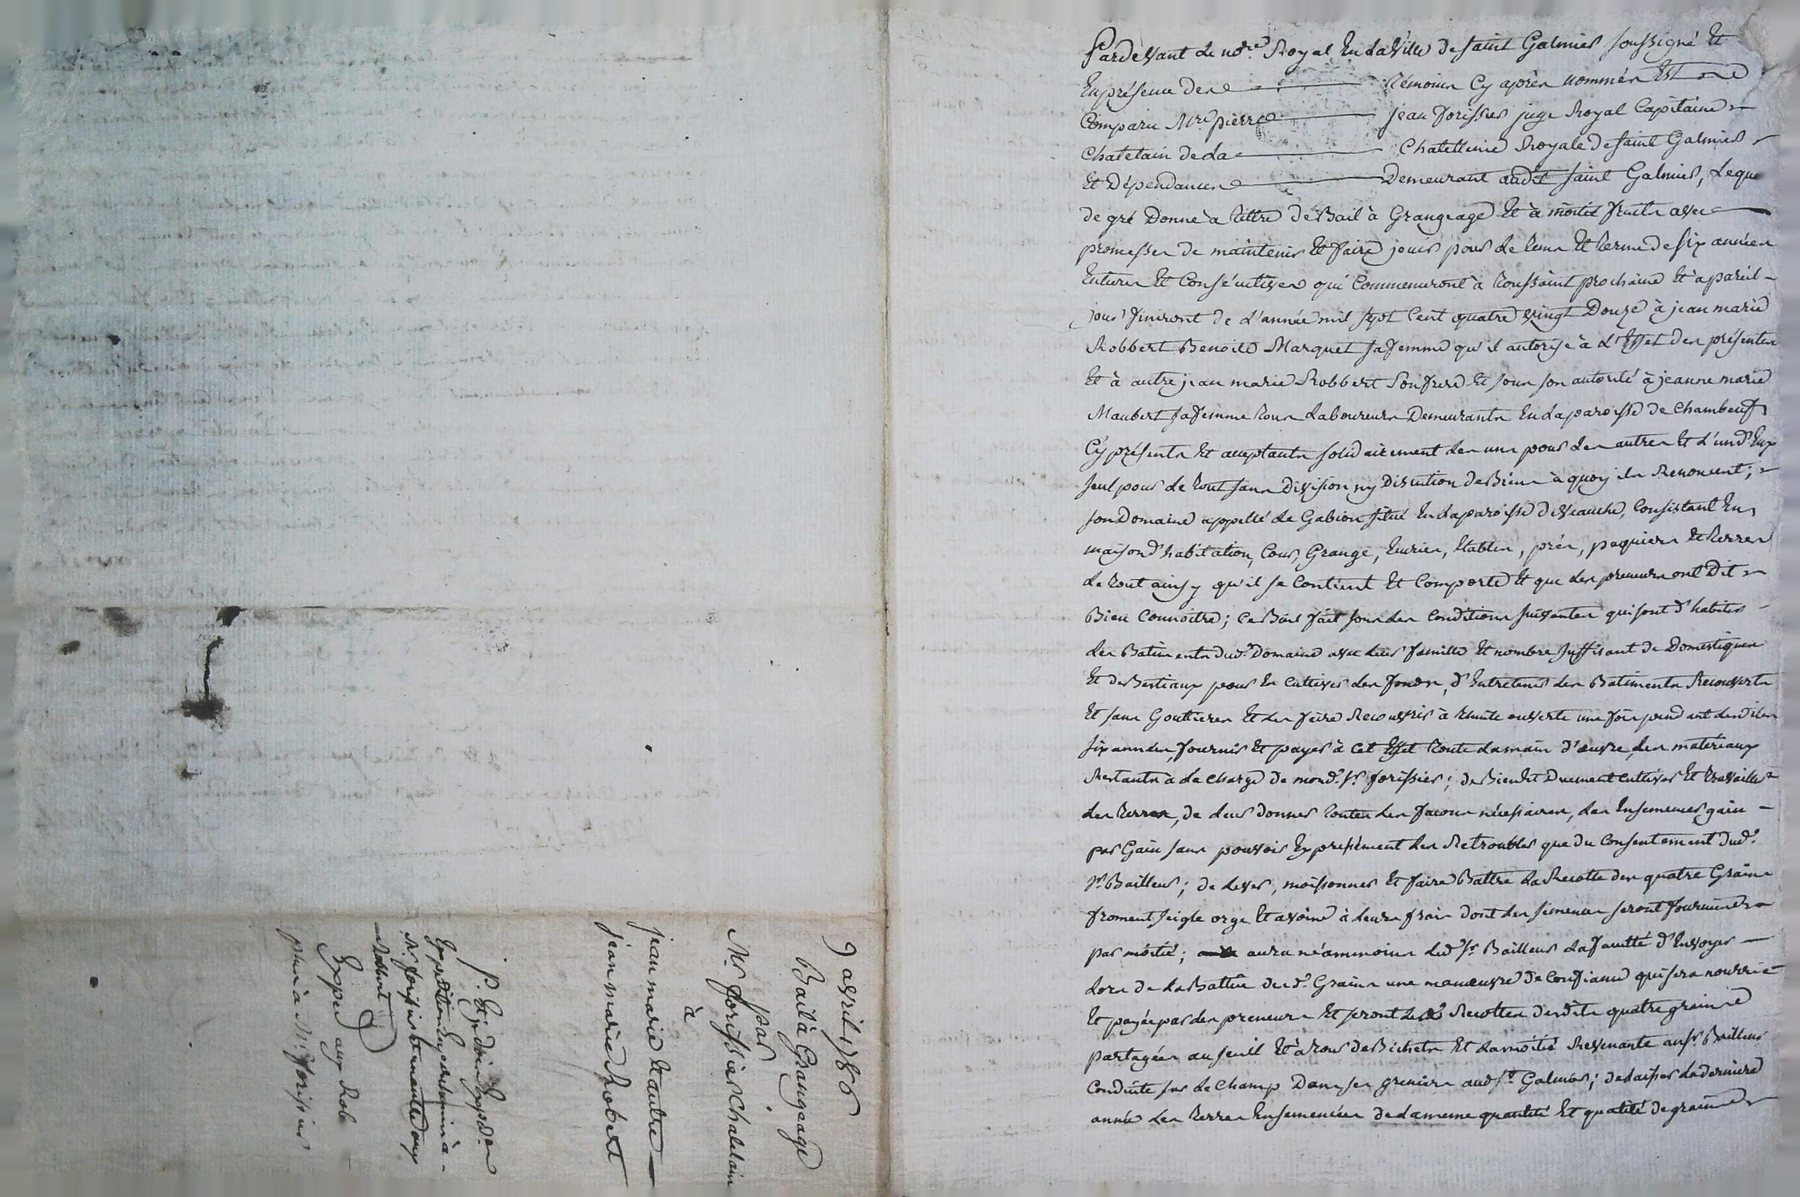 Pardevant le no.re Royal En la Ville de saint Galmier soussigné Et
En présence des temoins Cy après nommés Est
Comparu Mre pierre jean forissier juge Royal Capitaine
Chatelain de la Chatellenie Royale de saint Galmier
Et Dépendances Demeurant audit saint Galmier, Lequel
de gré Donne à tittre de Bail à Grangeage Et à moitié fruits avec
promesses de maintenir Et faire jouir pour le tems Et terme de six années
Entieres Et Consécutives qui Commenceront à toussaint prochaine Et à pareil
jour finiront de L'année mil sept Cent quatre vingt Douze à jean marie
Robbert Benoite Marquet sa femme qu'il autorise à L'Effet des présentes
Et à autre jean marie Robbert son frere Et sous son autorité à jeanne marie
Maubert sa femme tous Laboureurs Demeurants En la paroisse de Chambeuf
Cy présents Et acceptants solidairement les uns pour les autres Et L'un d'Eux
seul pour le tout sans Division ny Discution de Biens à quoy ils Renoncent;
son Domaine appellé le Gabion situé En la paroisse de Veauche, Consistant En
maison d'habitation, Cour, Grange, Ecurie, Etables, prés, paquiers Et terres
le tout ainsy qu'il se Contient Et Comporte Et que les preneurs ont Dit
Bien Connoitre; Ce Bail fait sous les Conditions suivantes qui sont d'habiter
les Batiments dud. Domaine avec leur famille Et nombre suffisant de Domestiques
Et de Bestiaux pour En Cultiver les fonds, d'Entretenir les Batiments Recouverts
Et sans Gouttieres Et les faire Recouvrir à thuile ouverte une fois pendant lesdites
six années, fournir Et payer à Cet Effet toute la main d'œuvre, les materiaux
Restants à la charge de mond. Sr. forissier; de Bien Et Duement Cultiver Et travailler
les terres, de leur donner toutes les façons nécessaires, les Ensemencer gain
par Gain sans pouvoir Expressément les Retroubler que du Consentement dud.
Sr. Bailleur; de Lever, moissonner Et faire Battre la Recolte des quatre Grains
froment seigle orge Et avoine à leurs frais dont les semences seront fournies
par moitié; aura néammoins led. Sr. Bailleur La faculté d'Envoyer
Lors de la Battue desd. Grains une manœuvre de Confiance qui sera nourrie
Et payée par les preneurs Et seront les Recoltes desdits quatre grains
partagées au seuil Et à tour de Bichets Et La moitié Revenante aud Sr Bailleur
Conduite sur le Champ Dans ses greniers aud St. Galmier; de laisser la derniere
année les terres Ensemencées de la meme quantité Et qualité de grains
9 avril 1786
Bail à Grangeage
par
Mr forissier Chatelain
à
jean marie Et autre
jean marie Robert
Expedition
Mr forissier
Robbert
Exped aux Rob
pour à Mr forissier